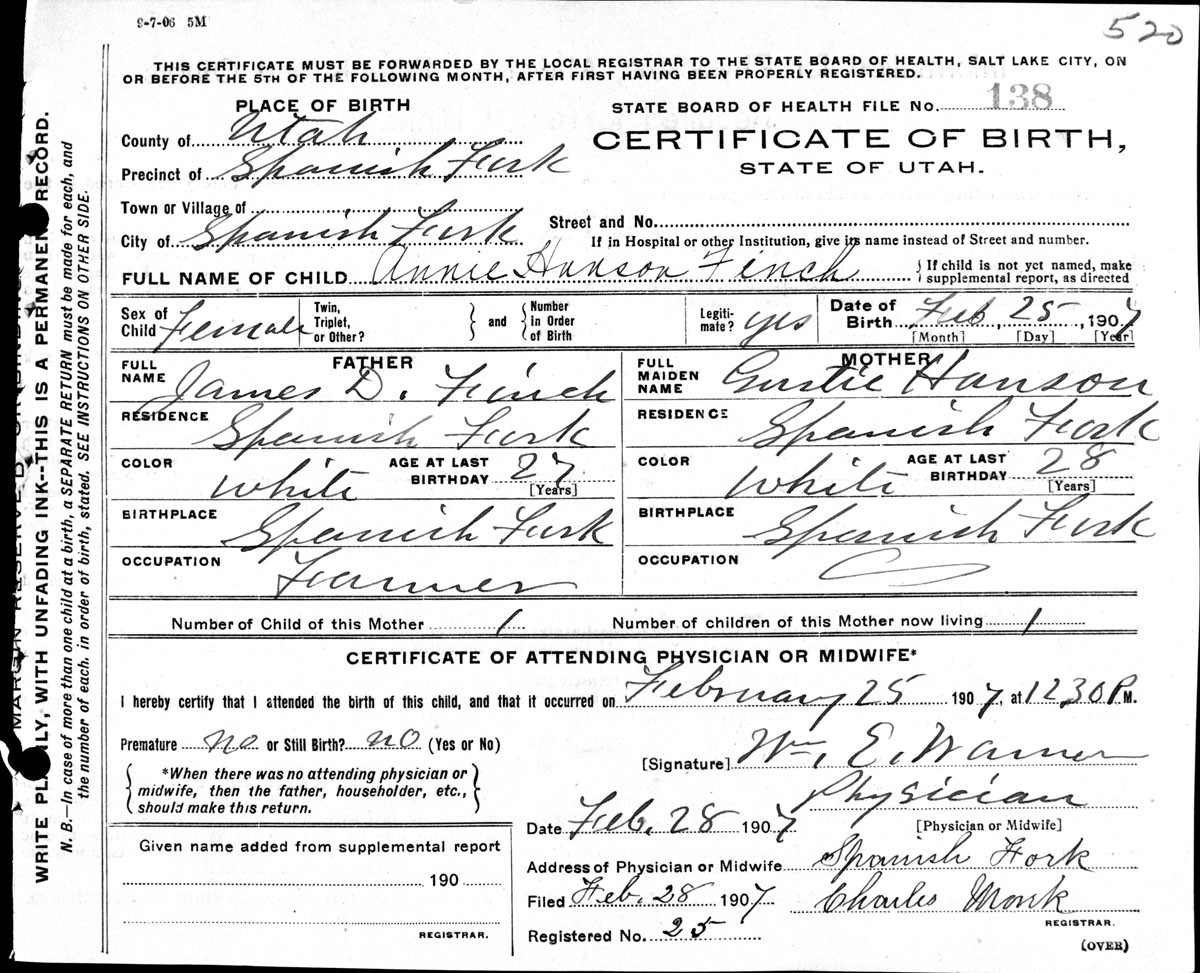 9-7-06 5M
520
THIS CERTIFICATE MUST BE FORWARDED BY THE LOCAL REGISTRAR TO THE STATE BOARD OF HEALTH, SALT LAKE CITY, ON
OR BEFORE THE 5TH OF THE FOLLOWING MONTH, AFTER FIRST HAVING BEEN PROPERLY REGISTERED.
PLACE OF BIRTH
STATE BOARD OF HEALTH FILE No. 138
County of Utah
CERTIFICATE OF BIRTH,
Precinct of Spanish Fork
STATE OF UTAH.
Town or Village of
Street and No.
City of Spanish Fork
If in Hospital or other Institution, give its name instead of Street and number.
FULL NAME OF CHILD Annie Hanson Finch
If child is not yet named, make
supplemental report, as directed
Sex of
Child Female
Twin,
Triplet,
or Other?
and
Number
in Order
of Birth
Legiti-
mate? yes
Date of
Birth Feb, 25, 1907
[Month] [Day] [Year]
FATHER
FULL
NAME James D. Finch
RESIDENCE Spanish Fork
COLOR White
AGE AT LAST
BIRTHDAY 27
[Years]
BIRTHPLACE Spanish Fork
OCCUPATION Farmer
MOTHER
FULL
MAIDEN
NAME Gustie Hanson
RESIDENCE Spanish Fork
COLOR White
AGE AT LAST
BIRTHDAY 28
[Years]
BIRTHPLACE Spanish Fork
OCCUPATION
Number of Child of this Mother 1
Number of children of this Mother now living 1
CERTIFICATE OF ATTENDING PHYSICIAN OR MIDWIFE*
I hereby certify that I attended the birth of this child, and that it occurred on February 25 1907, at 12.30 P M.
Premature no or Still Birth? no (Yes or No)
[Signature] Wm. E. Warner
*When there was no attending physician or
midwife, then the father, householder, etc.,
should make this return.
Physician
[Physician or Midwife]
Date Feb. 28 1907
Given name added from supplemental report
Address of Physician or Midwife Spanish Fork
190
Filed Feb. 28 1907 Charles Monk
REGISTRAR.
REGISTRAR.
Registered No. 25
(OVER)
WRITE PLAINLY, WITH UNFADING INK--THIS IS A PERMANENT RECORD.
N. B.—In case of more than one child at a birth, a SEPARATE RETURN must be made for each, and
the number of each, in order of birth, stated. SEE INSTRUCTIONS ON OTHER SIDE.